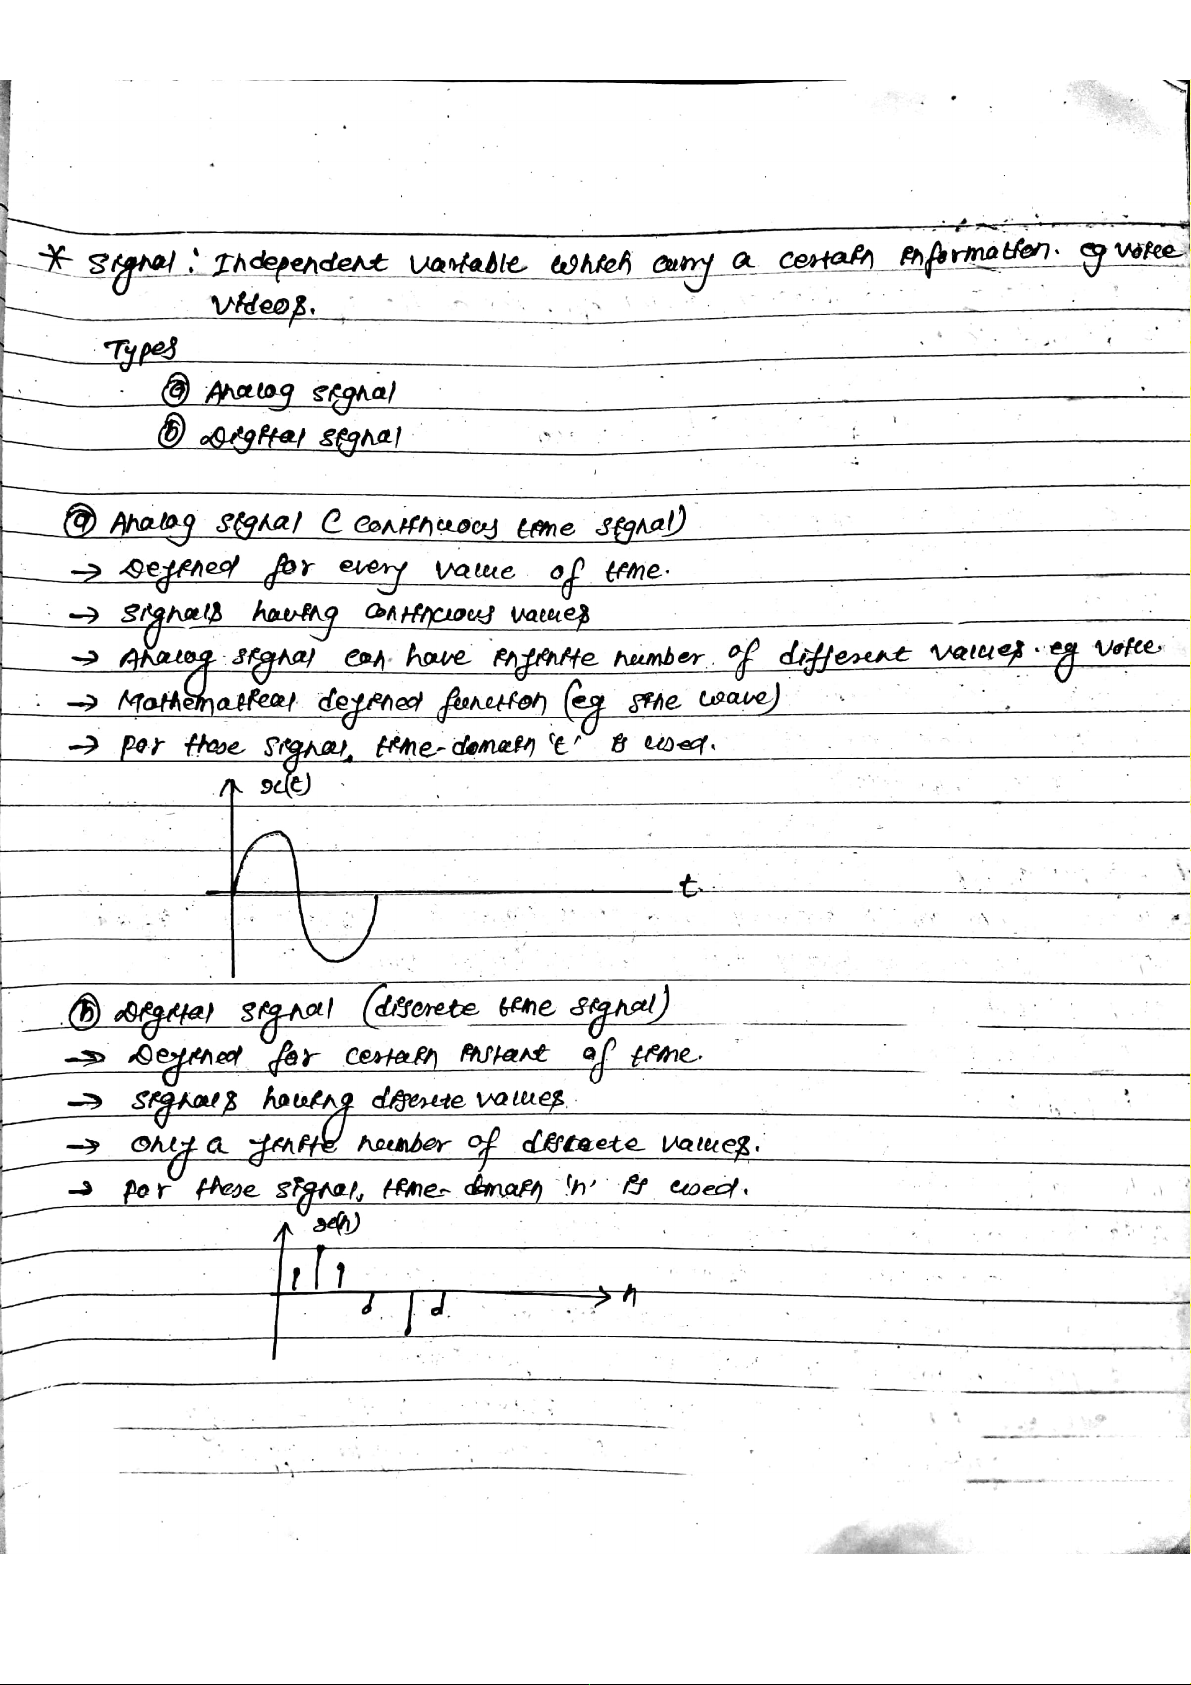 * Signal: Independent variable which carry a certain information. eg voice
videos.
Types
ⓐ Analog signal
ⓑ Digital signal
ⓐ Analog signal (continuous time signal)
→ Defined for every value of time.
→ signals having continuous values
→ Analog signal can have infinite number of different values. eg voice.
→ Mathematical defined function (eg sine wave)
→ for these signal, time-domain 't' is used.
x(t)
t
ⓑ Digital signal (discrete time signal)
→ Defined for certain instant of time.
→ signals having discrete values
→ only a finite number of discrete values.
→ for these signal, time-domain 'n' is used.
x(n)
n